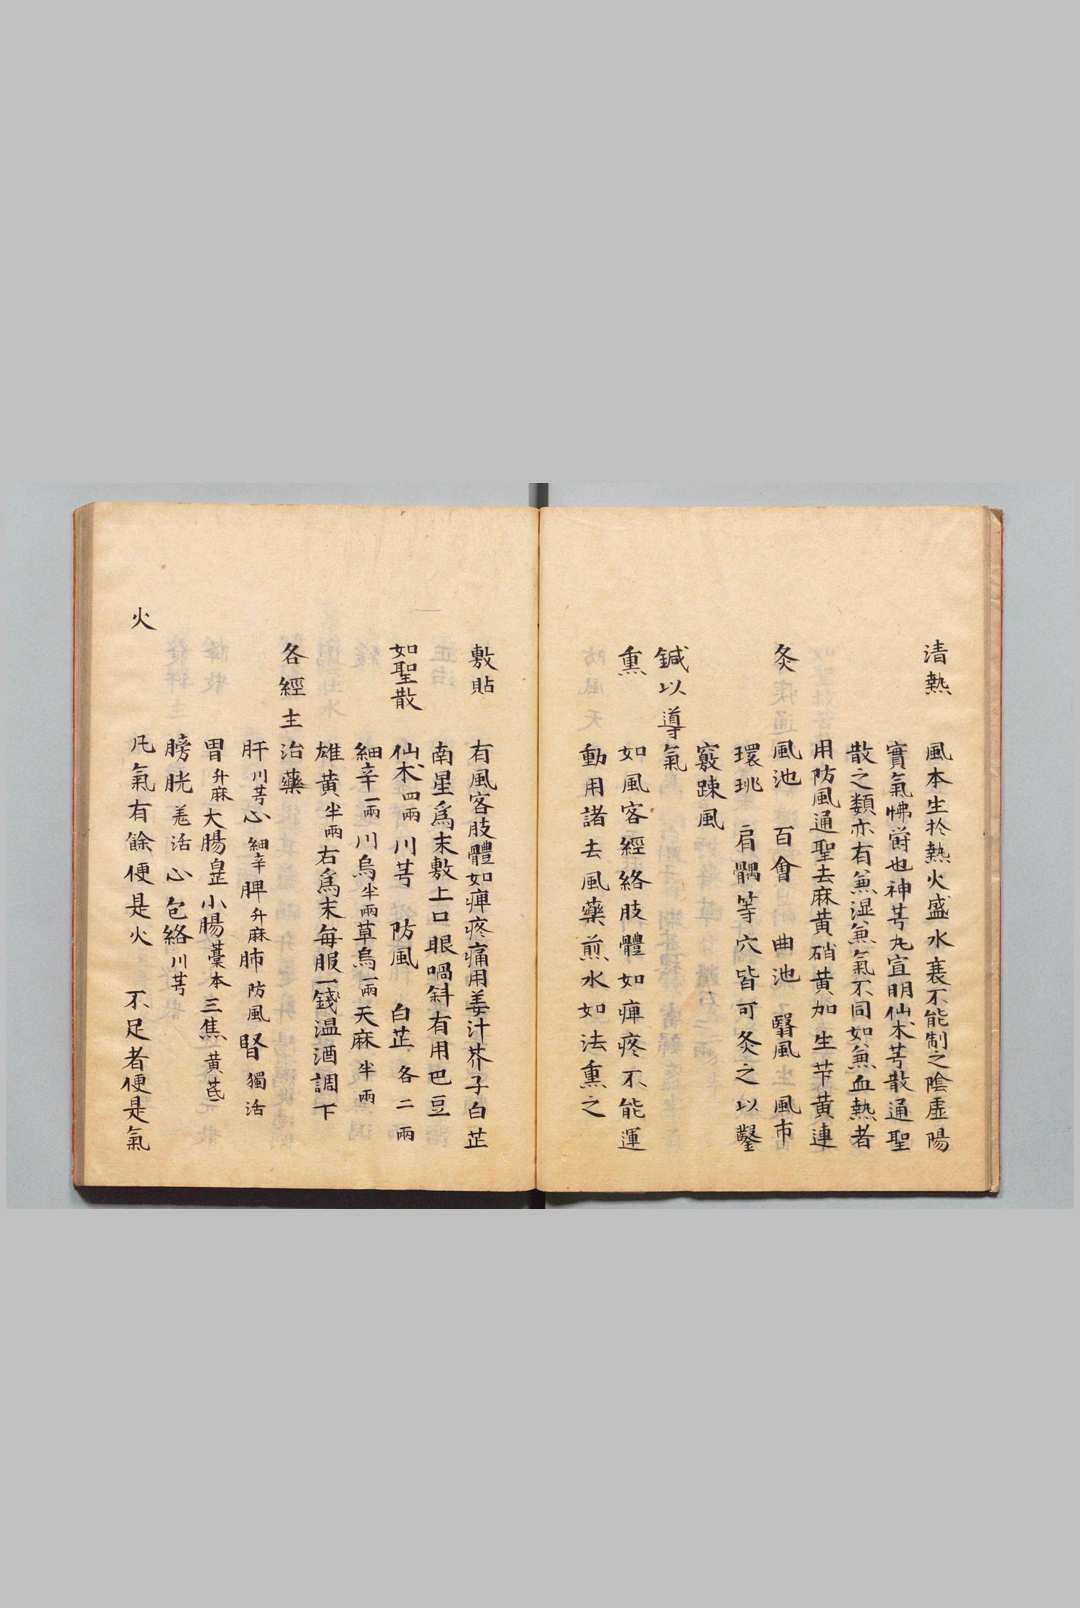 清熱　風本生於熱火盛水衰不能制之陰虛陽
實氣怫欝也神芎丸宣明仙朮芎散通聖
散之類亦有兼湿兼氣不同如兼血熱者
用防風通聖去麻黄硝黄加生芐黄連
灸　風池　百會　曲池　翳風　風市
環跳　肩髃等穴皆可灸之以鑿
竅踈風
鍼以導氣
熏　如風客經絡肢體如癉疼不能運
動用諸去風藥煎水如法熏之
敷貼　有風客肢體如癉疼痛用姜汁芥子白芷
南星為末敷上口眼喎斜有用巴豆
如聖散　仙朮四兩川芎　防風　白芷各二兩
細辛一兩川烏半兩草烏一兩天麻半兩
雄黄半兩右為末每服一錢温酒調下
各經主治藥
肝川芎心細辛脾升麻肺防風腎獨活
胃升麻大腸皀小腸藁本三焦黄芪
膀胱羗活心包絡川芎
火　凡氣有餘便是火　不足者便是氣